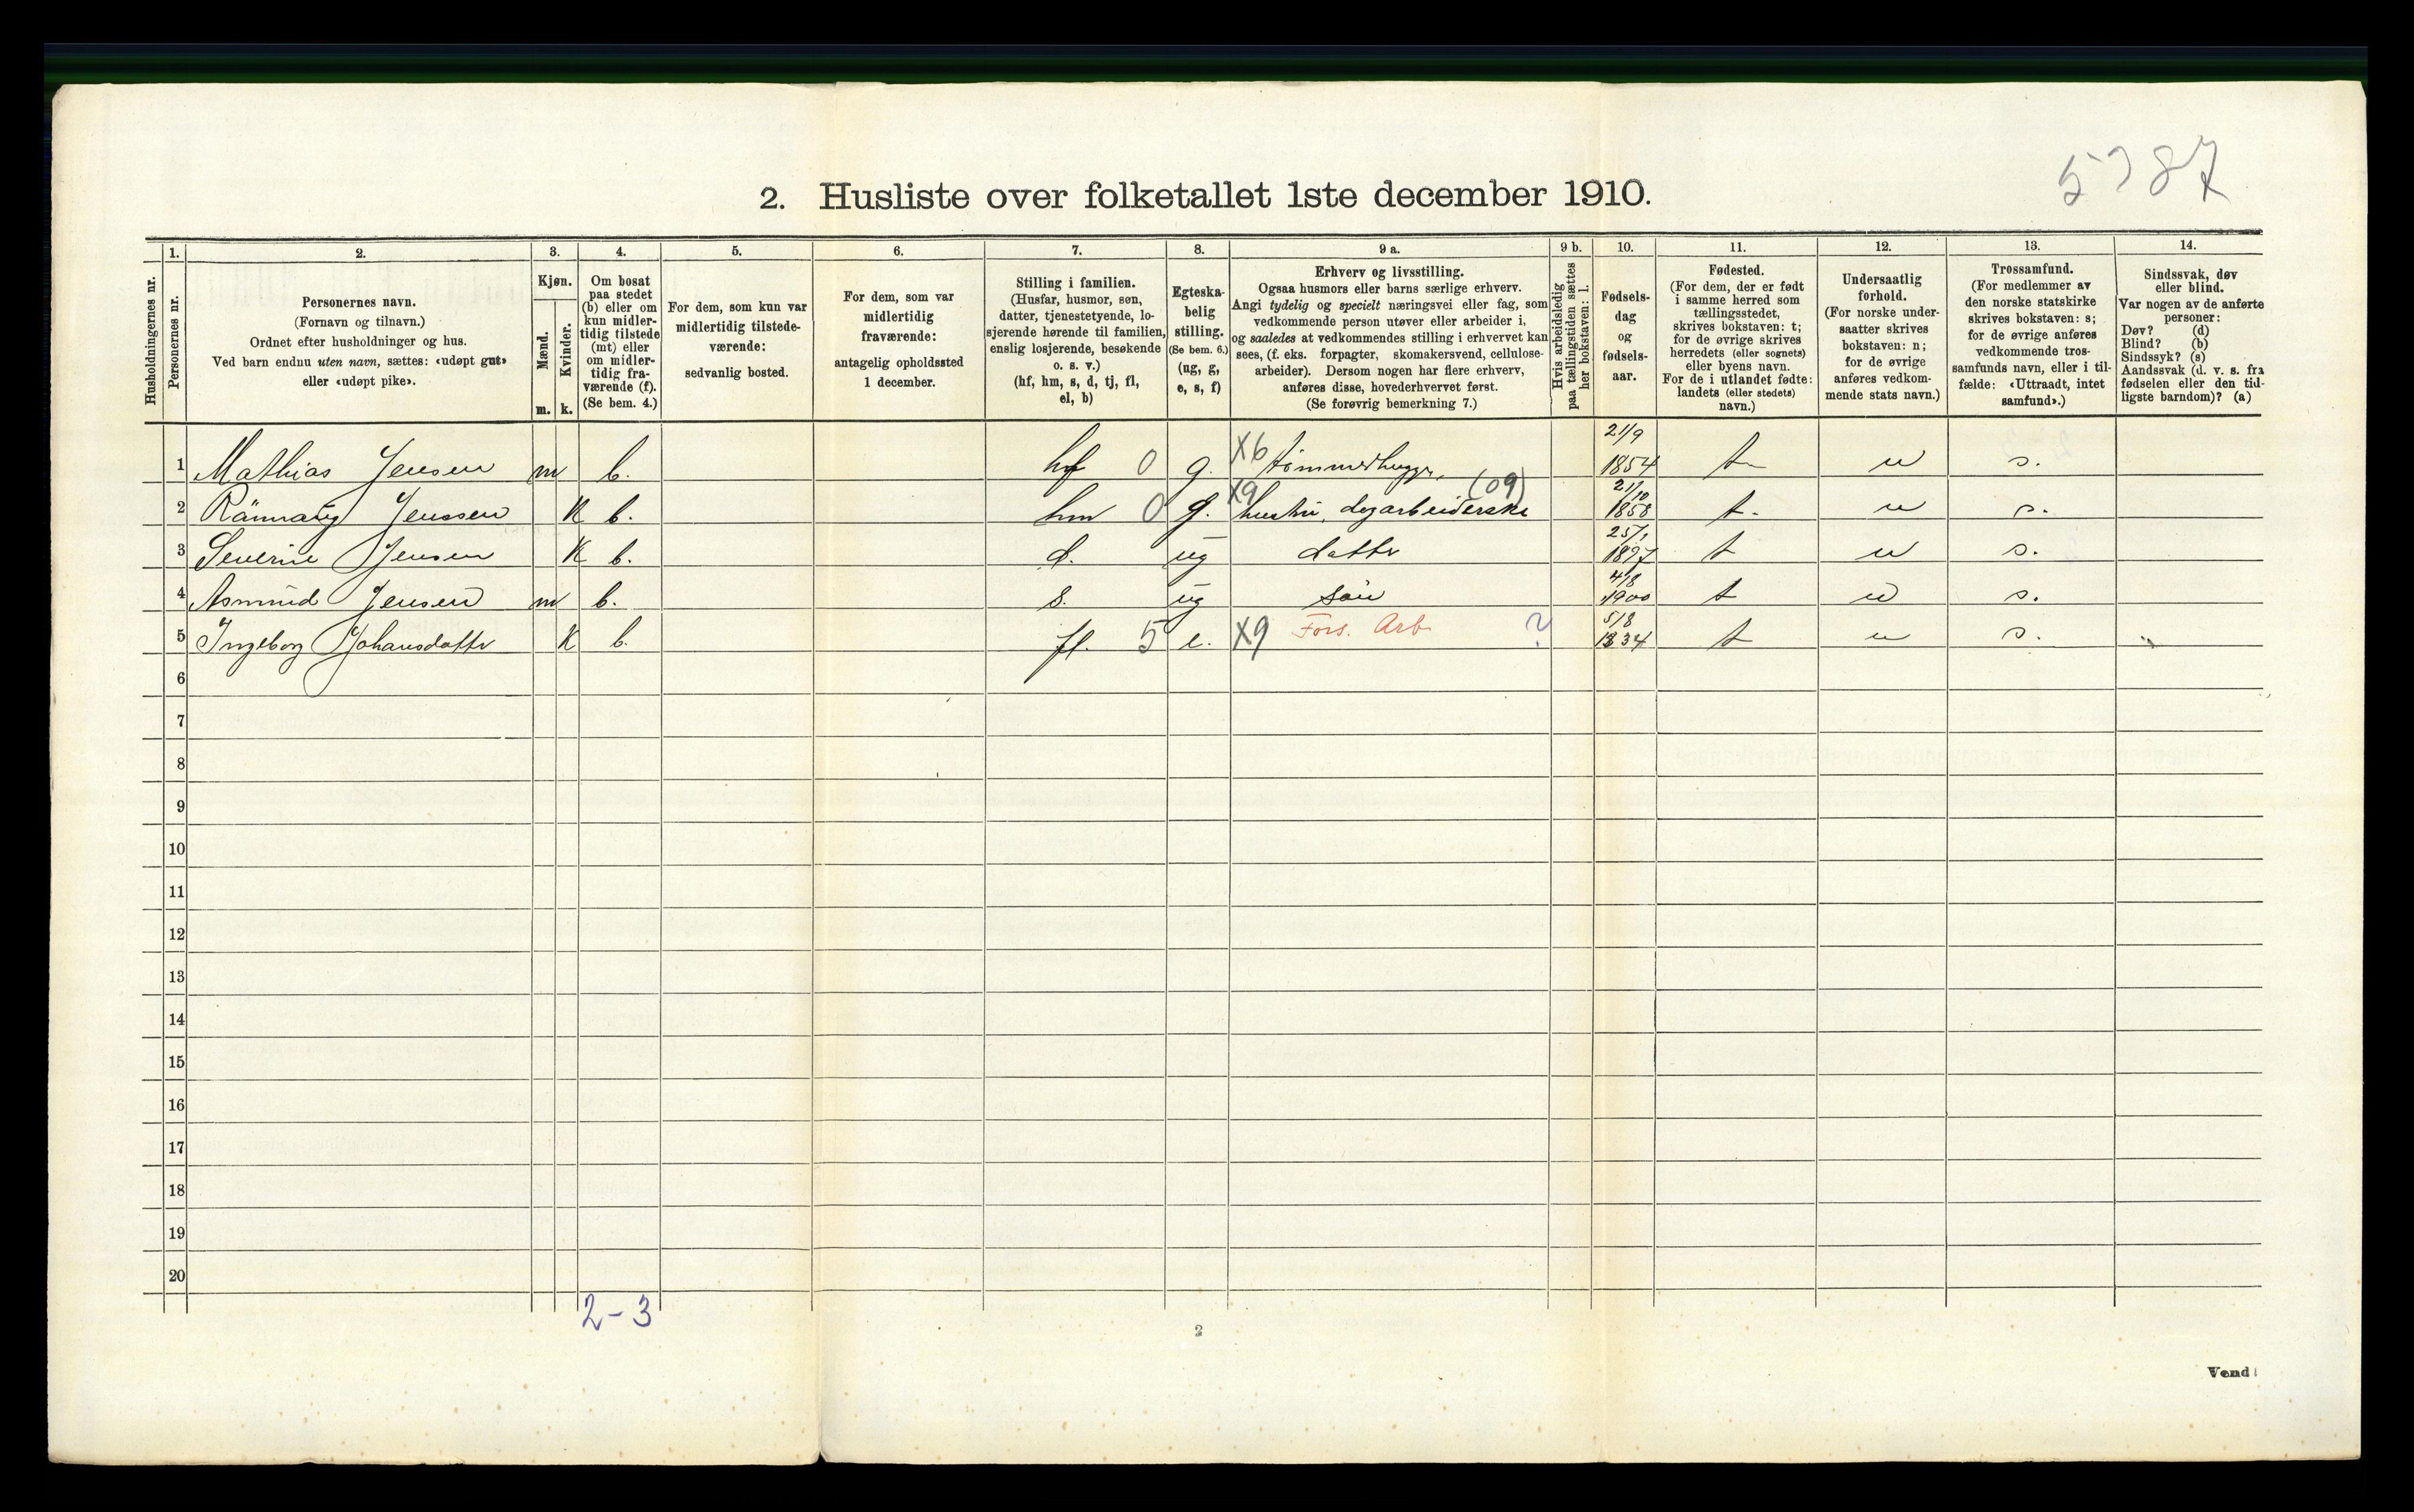 5787
2. Husliste over folketallet 1ste december 1910.
Husholdningernes nr.
1.
Personernes nr.
2.
Personernes navn.
(Fornavn og tilnavn.)
Ordnet efter husholdninger og hus.
Ved barn endnu uten navn, sættes: «udøpt gut»
eller «udøpt pike».
3.
Kjøn.
Mænd.
Kvinder.
m. k.
4.
Om bosat
paa stedet
(b) eller om
kun midler-
tidig tilstede
(mt) eller
om midler-
tidig fra-
værende (f).
(Se bem. 4.)
5.
For dem, som kun var
midlertidig tilstede-
værende:
sedvanlig bosted.
6.
For dem, som var
midlertidig
fraværende:
antagelig opholdssted
1 december.
7.
Stilling i familien.
(Husfar, husmor, søn,
datter, tjenestetyende, lo-
sjerende hørende til familien,
enslig losjerende, besøkende
o. s. v.)
(hf, hm, s, d, tj, fl,
el, b)
8.
Egteska-
belig
stilling.
(Se bem. 6.)
(ug, g,
e, s, f)
9 a.
Erhverv og livsstilling.
Ogsaa husmors eller barns særlige erhverv.
Angi tydelig og specielt næringsvei eller fag, som
vedkommende person utøver eller arbeider i,
og saaledes at vedkommendes stilling i erhvervet kan
sees, (f. eks. forpagter, skomakersvend, cellulose-
arbeider). Dersom nogen har flere erhverv,
anføres disse, hovederhvervet først.
(Se forøvrig bemerkning 7.)
9 b.
Hvis arbeidsledig
paa tællingstiden sættes
her bokstaven: l.
10.
Fødsels-
dag
og
fødsels-
aar.
11.
Fødested.
(For dem, der er født
i samme herred som
tællingsstedet,
skrives bokstaven: t;
for de øvrige skrives
herredets (eller sognets)
eller byens navn.
For de i utlandet fødte:
landets (eller stedets)
navn.)
12.
Undersaatlig
forhold.
(For norske under-
saatter skrives
bokstaven: n;
for de øvrige
anføres vedkom-
mende stats navn.)
13.
Trossamfund.
(For medlemmer av
den norske statskirke
skrives bokstaven: s;
for de øvrige anføres
vedkommende tros-
samfunds navn, eller i til-
fælde: «Uttraadt, intet
samfund».)
14.
Sindssvak, døv
eller blind.
Var nogen av de anførte
personer:
Døv? (d)
Blind? (b)
Sindssyk? (s)
Aandssvak (d. v. s. fra
fødselen eller den tid-
ligste barndom)? (a)
1 Mathias Jensen m b. hf 0 g. X6 tömmerhugger, 21/9 1854 t n s.
2 Rännaug Jenssen K b. hm 0 g. X9 hustru, dagarbeiderske (09) 21/10 1858 t. n s.
3 Severine Jensen K b. d. ug datter 25/1 1897 t n s.
4 Asmund Jensen m b. s. ug sön 4/8 1900 t n s.
5 Ingeborg Johansdatter K b. fl. 5 e. X9 Fors. Arb ? 5/8 1834 t n s.
6
7
8
9
10
11
12
13
14
15
16
17
18
19
20
2-3
2
Vend